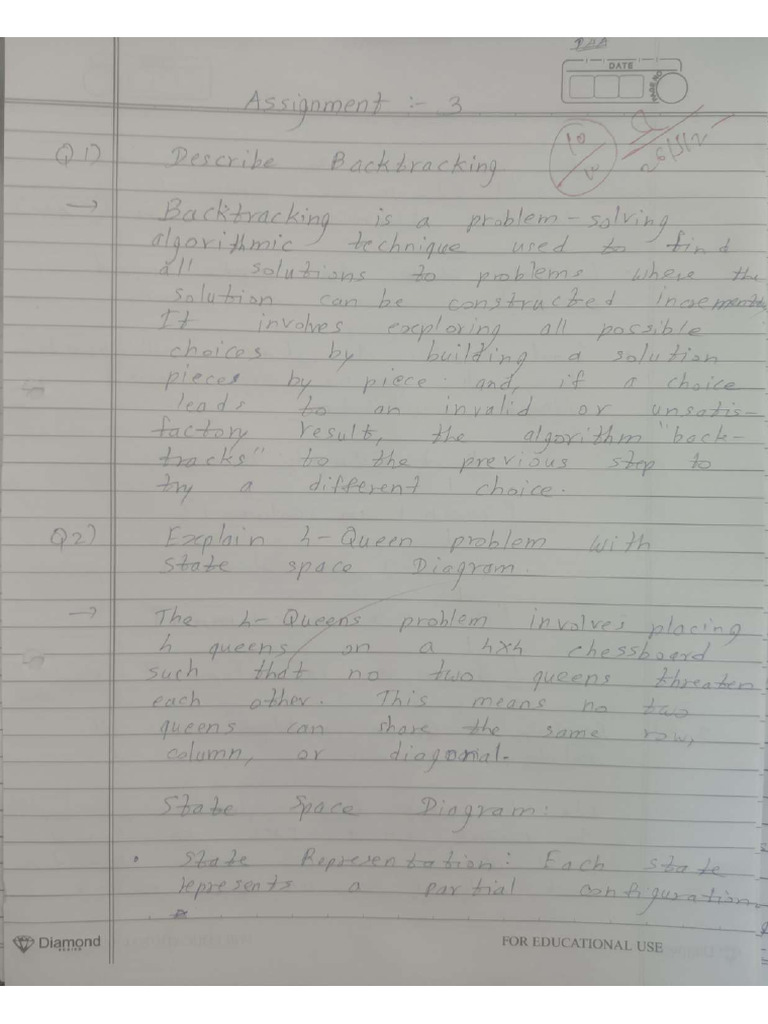 DAA
DATE
PAGE NO
Assignment :- 3
10
10
Q1) Describe Backtracking
→ Backtracking is a problem-solving
algorithmic technique used to find
all solutions to problems where the
solution can be constructed
It involves exploring all possible
choices by building a solution
pieces by piece and, if a choice
leads to an invalid or unsatis-
factory results, the algorithm "back-
tracks" to the previous step to
try a different choice.
Q2) Explain 4-Queen problem with
State space Diagram.
→ The 4-Queens problem involves placing
4 queens on a 4x4 chessboard
such that no two queens threaten
each other. This means no two
queens can share the same row,
column, or diagonal.
State Space Diagram:
• State Representation: Each state
represents a partial configuration
Diamond
FOR EDUCATIONAL USE